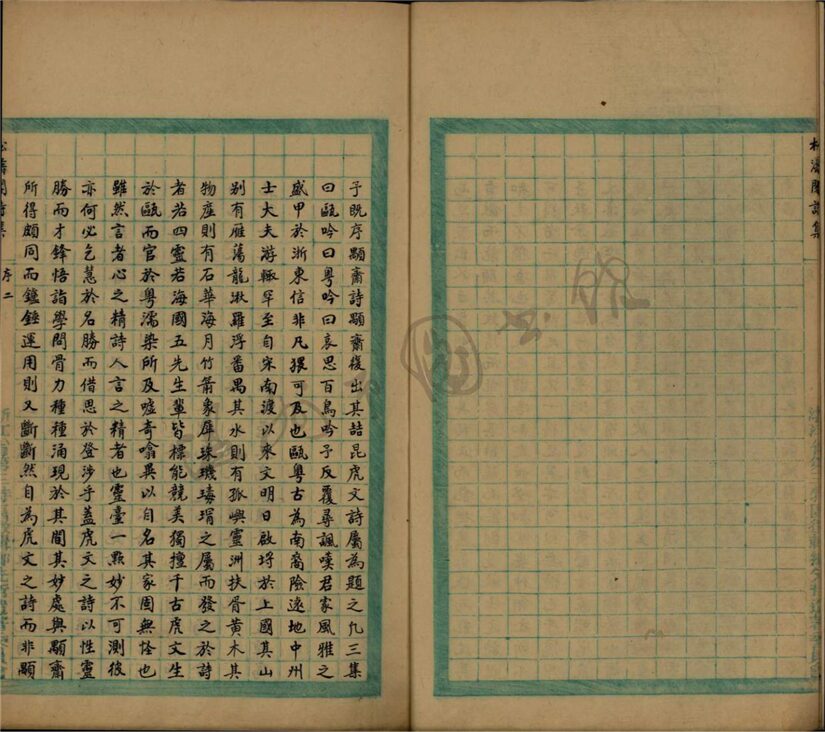 松濤閣詩集
予既序顯齋詩顯齋復出其喆昆虎文詩屬為題之凡三集
曰甌吟曰粵吟曰哀思百鳥吟予反覆尋諷嘆君家風雅之
盛甲於浙東信非凡猥可及也甌粵古為南裔險遠地中州
士大夫游轍罕至自宋南渡以來文明日啟埒於上國其山
別有雁蕩龍湫羅浮番禺其水則有孤嶼靈洲扶胥黃木其
物產則有石華海月竹箭象犀珠璣瑇瑁之屬而發之於詩
者若四靈若海國五先生輩皆標能競美獨擅千古虎文生
於甌而官於粵濡染所及噓奇噏異以自名其家固無怪也
雖然言者心之精詩人言之精者也靈臺一點妙不可測彼
亦何必乞慧於名勝而借思於登涉乎蓋虎文之詩以性靈
勝而才鋒悟詣學問骨力種種涌現於其間其妙處與顯齋
所得頗同而鑪錘運用則又斷斷然自為虎文之詩而非顯
松濤閣詩集
序二